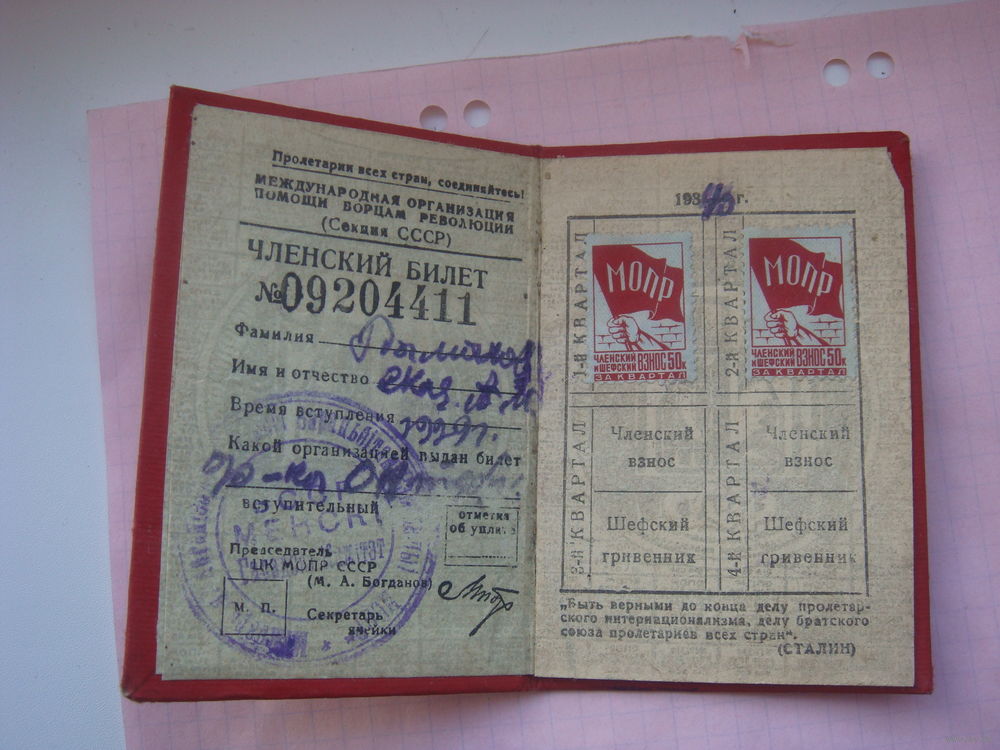 Пролетарии всех стран, соединяйтесь!
МЕЖДУНАРОДНАЯ ОРГАНИЗАЦИЯ
ПОМОЩИ БОРЦАМ РЕВОЛЮЦИИ
(Секция СССР)
ЧЛЕНСКИЙ БИЛЕТ
№09204411
Фамилия
Имя и отчество
Время вступления
Какой организацией выдан билет
вступительный
отметка
об уплате
Председатель
ЦК МОПР СССР
(М. А. Богданов)
М. П.
Секретарь
ячейки
г.
1-й КВАРТАЛ
МОПР
ЧЛЕНСКИЙ
И ШЕФСКИЙ ВЗНОС 50к
ЗА КВАРТАЛ
2-й КВАРТАЛ
МОПР
ЧЛЕНСКИЙ
И ШЕФСКИЙ ВЗНОС 50к
ЗА КВАРТАЛ
3-й КВАРТАЛ
Членский
взнос
Шефский
гривенник
4-й КВАРТАЛ
Членский
взнос
Шефский
гривенник
„Быть верными до конца делу пролетар-
ского интернационализма, делу братского
союза пролетариев всех стран“.
(СТАЛИН)